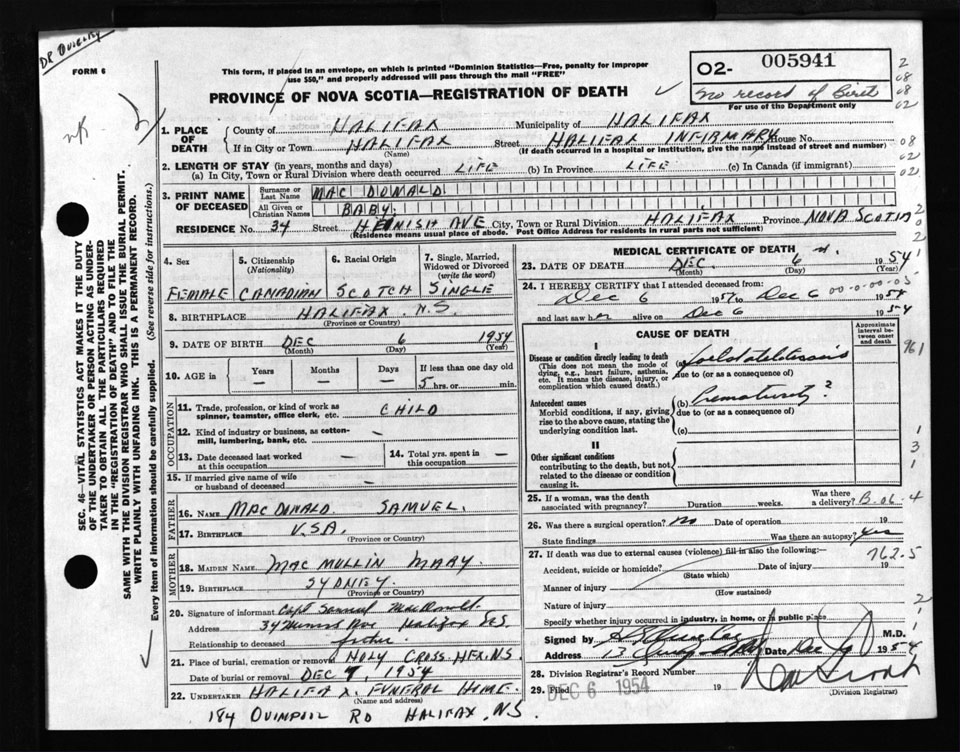 DR
FORM 6
This form, if placed in an envelope, on which is printed "Dominion Statistics—Free, penalty for improper
use $50," and properly addressed will pass through the mail "FREE"
PROVINCE OF NOVA SCOTIA—REGISTRATION OF DEATH
O2- 005941
No record of Birth
For use of the Department only
2
08
08
02
1. PLACE OF DEATH
County of HALIFAX Municipality of HALIFAX
If in City or Town HALIFAX Street HALIFAX INFIRMARY House No.
(Name) (If death occurred in a hospital or institution, give the name instead of street and number)
08
02
02
2. LENGTH OF STAY (in years, months and days)
(a) In City, Town or Rural Division where death occurred LIFE (b) In Province LIFE (c) In Canada (if immigrant)
3. PRINT NAME OF DECEASED
Surname or Last Name MAC DONALD
All Given or Christian Names BABY.
RESIDENCE No. 34 Street City, Town or Rural Division HALIFAX Province NOVA SCOTIA
(Residence means usual place of abode. Post Office Address for residents in rural parts not sufficient)
2
0
2
4. Sex 5. Citizenship (Nationality) 6. Racial Origin 7. Single, Married, Widowed or Divorced (write the word)
FEMALE CANADIAN SCOTCH SINGLE
8. BIRTHPLACE HALIFAX N.S.
(Province or Country)
9. DATE OF BIRTH DEC 6 1954
(Month) (Day) (Year)
10. AGE in Years Months Days If less than one day old
— — — 5 hrs. or min.
OCCUPATION
11. Trade, profession, or kind of work as spinner, teamster, office clerk, etc. CHILD
12. Kind of industry or business, as cotton-mill, lumbering, bank, etc. —
13. Date deceased last worked at this occupation — 14. Total yrs. spent in this occupation —
15. If married give name of wife or husband of deceased —
FATHER
16. Name MAC DONALD SAMUEL.
17. Birthplace U.S.A.
(Province or Country)
MOTHER
18. Maiden Name MAC MULLIN MARY
19. Birthplace SYDNEY.
(Province or Country)
20. Signature of informant Capt Samuel MacDonald.
Address 34 Ave Halifax N.S.
Relationship to deceased father.
21. Place of burial, cremation or removal HOLY CROSS. HFX. NS
Date of burial or removal DEC 7, 1954
22. Undertaker HALIFAX FUNERAL HOME.
(Name and address)
184 QUINPOOL RD HALIFAX, N.S.
MEDICAL CERTIFICATE OF DEATH
23. DATE OF DEATH DEC. 6 1954
(Month) (Day) (Year)
24. I HEREBY CERTIFY that I attended deceased from:
Dec 6 1954 to Dec 6 1954
00-0-00-05
and last saw her alive on Dec 6 1954
CAUSE OF DEATH
Approximate interval between onset and death
I
Disease or condition directly leading to death
(This does not mean the mode of dying, e.g., heart failure, asthenia, etc. It means the disease, injury, or complication which caused death.)
(a)
due to (or as a consequence of)
961
Antecedent causes
Morbid conditions, if any, giving rise to the above cause, stating the underlying condition last.
(b) Prematurity?
due to (or as a consequence of)
(c)
II
Other significant conditions
contributing to the death, but not related to the disease or condition causing it.
1
3
1
25. If a woman, was the death associated with pregnancy? Duration weeks. Was there a delivery?
B-06-4
26. Was there surgical operation? no Date of operation 19
State findings Was there an autopsy? Yes
27. If death was due to external causes (violence) fill in also the following:
762.5
Accident, suicide or homicide? Date of injury 19
(State which)
Manner of injury
(How sustained)
Nature of injury
Specify whether injury occurred in industry, in home, or in public place
2
1
Signed by M.D.
Address 13 Date Dec 1954
28. Division Registrar's Record Number
29. Filed DEC 6 1954 19
(Division Registrar)
SEC. 46—VITAL STATISTICS ACT MAKES IT THE DUTY
OF THE UNDERTAKER OR PERSON ACTING AS UNDER-
TAKER TO OBTAIN ALL THE PARTICULARS REQUIRED
IN THE "REGISTRATION OF DEATH" AND TO FILE THE
SAME WITH THE DIVISION REGISTRAR WHO SHALL ISSUE THE BURIAL PERMIT.
WRITE PLAINLY WITH UNFADING INK. THIS IS A PERMANENT RECORD.
Every item of information should be carefully supplied. (See reverse side for instructions.)